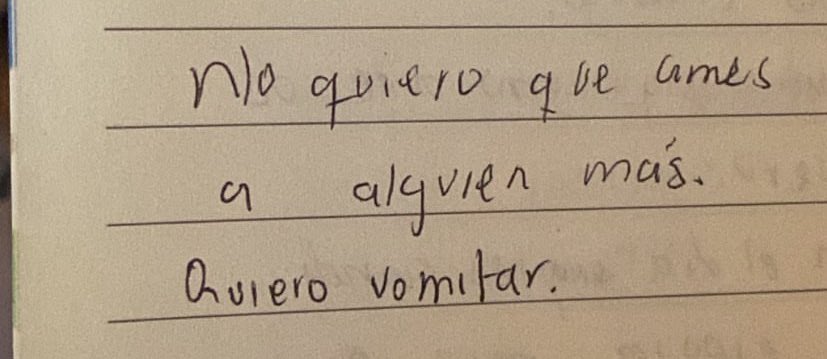 No quiero que ames
a alguien más.
Quiero vomitar.